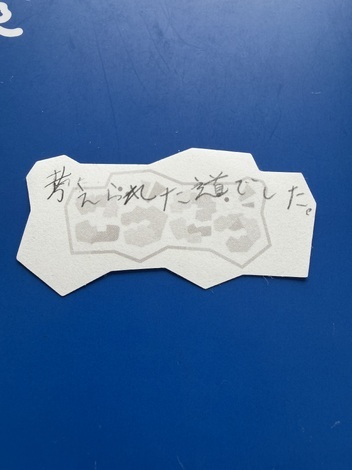 考えられた道でした。